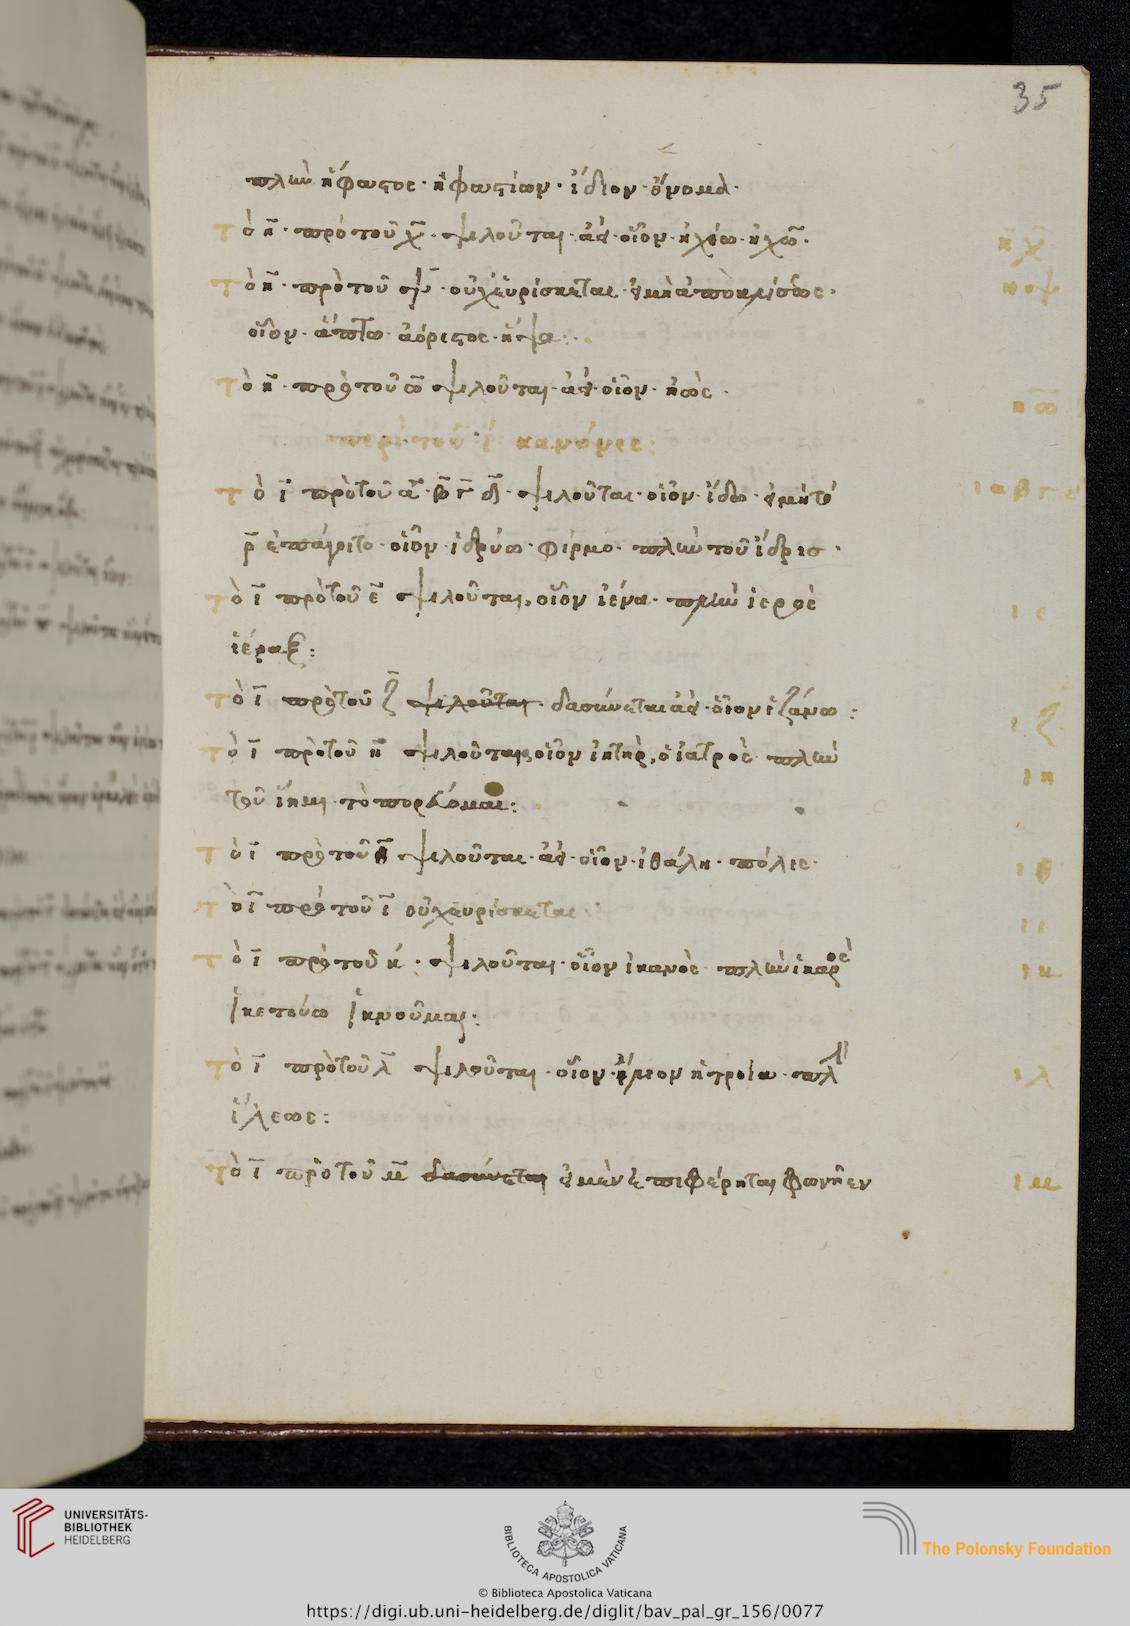 35
πλὴν ἥφαιστος · ἡφαιστίων · ἴδιον · ὄνομα ·
τὸ η̄ · πρὸ τοῦ χ̄ · ψιλοῦται · ἀεί · οἷον · ἠχέω · ἠχῶ ·
η χ̄
τὸ η̄ · πρὸ τοῦ ψ̄ · οὐχ εὑρίσκεται · εἰ μὴ ἀπὸ κλίσεως ·
η ψ
οἷον · ἅπτω · ἀόριστος · ἧψα :
τὸ η̄ · πρὸ τοῦ ω̄ ψιλοῦται · ἀεί · οἷον · ἠώς ·
η ω̄
περὶ τοῦ ῑ κανόνες :
τὸ ῑ πρὸ τοῦ ᾱ · β̄ γ̄ δ̄ · ψιλοῦται · οἷον · ἴδω · εἰ μὴ τὸ
ι α β γ δ
ρ̄ ἐπάγοιτο · οἷον · ἱδρύω · πλὴν τοῦ ἴδρις ·
τὸ ῑ πρὸ τοῦ ε̄ ψιλοῦται, οἷον ἰένα · πλὴν ἱερὸς
ι ε
ἱέραξ :
τὸ ῑ πρὸ τοῦ ζ̄ ψιλοῦται · δασύνεται ἀεί · οἷον ἱζάνω :
ι ζ
τὸ ῑ πρὸ τοῦ η̄ ψιλοῦται, οἷον ἰητὴρ, ὁ ἰατρὸς πλὴν
ι η
τοῦ ἵημι · τὸ πορεύομαι :
τὸ ῑ πρὸ τοῦ θ̄ ψιλοῦται · ἀεί · οἷον · ἰθάλη · πόλις ·
ι θ
τὸ ῑ πρὸ τοῦ ῑ οὐχ εὑρίσκεται :
ι ι
τὸ ῑ πρὸ τοῦ κ̄ · ψιλοῦται · οἷον ἰκανὸς πλὴν ἱκαρὸς
ι κ
ἱκετεύω ἱκνοῦμαι :
τὸ ῑ πρὸ τοῦ λ̄ ψιλοῦται · οἷον · ἴλιον ἡ τροία · πλὴν
ι λ
ἵλεως :
τὸ ῑ πρὸ τοῦ μ̄ δασύνεται εἰ μὲν ἐπιφέρηται φωνῆεν
ι μ
UNIVERSITÄTS-
BIBLIOTHEK
HEIDELBERG
BIBLIOTECA APOSTOLICA VATICANA
The Polonsky Foundation
© Biblioteca Apostolica Vaticana
https://digi.ub.uni-heidelberg.de/diglit/bav_pal_gr_156/0077